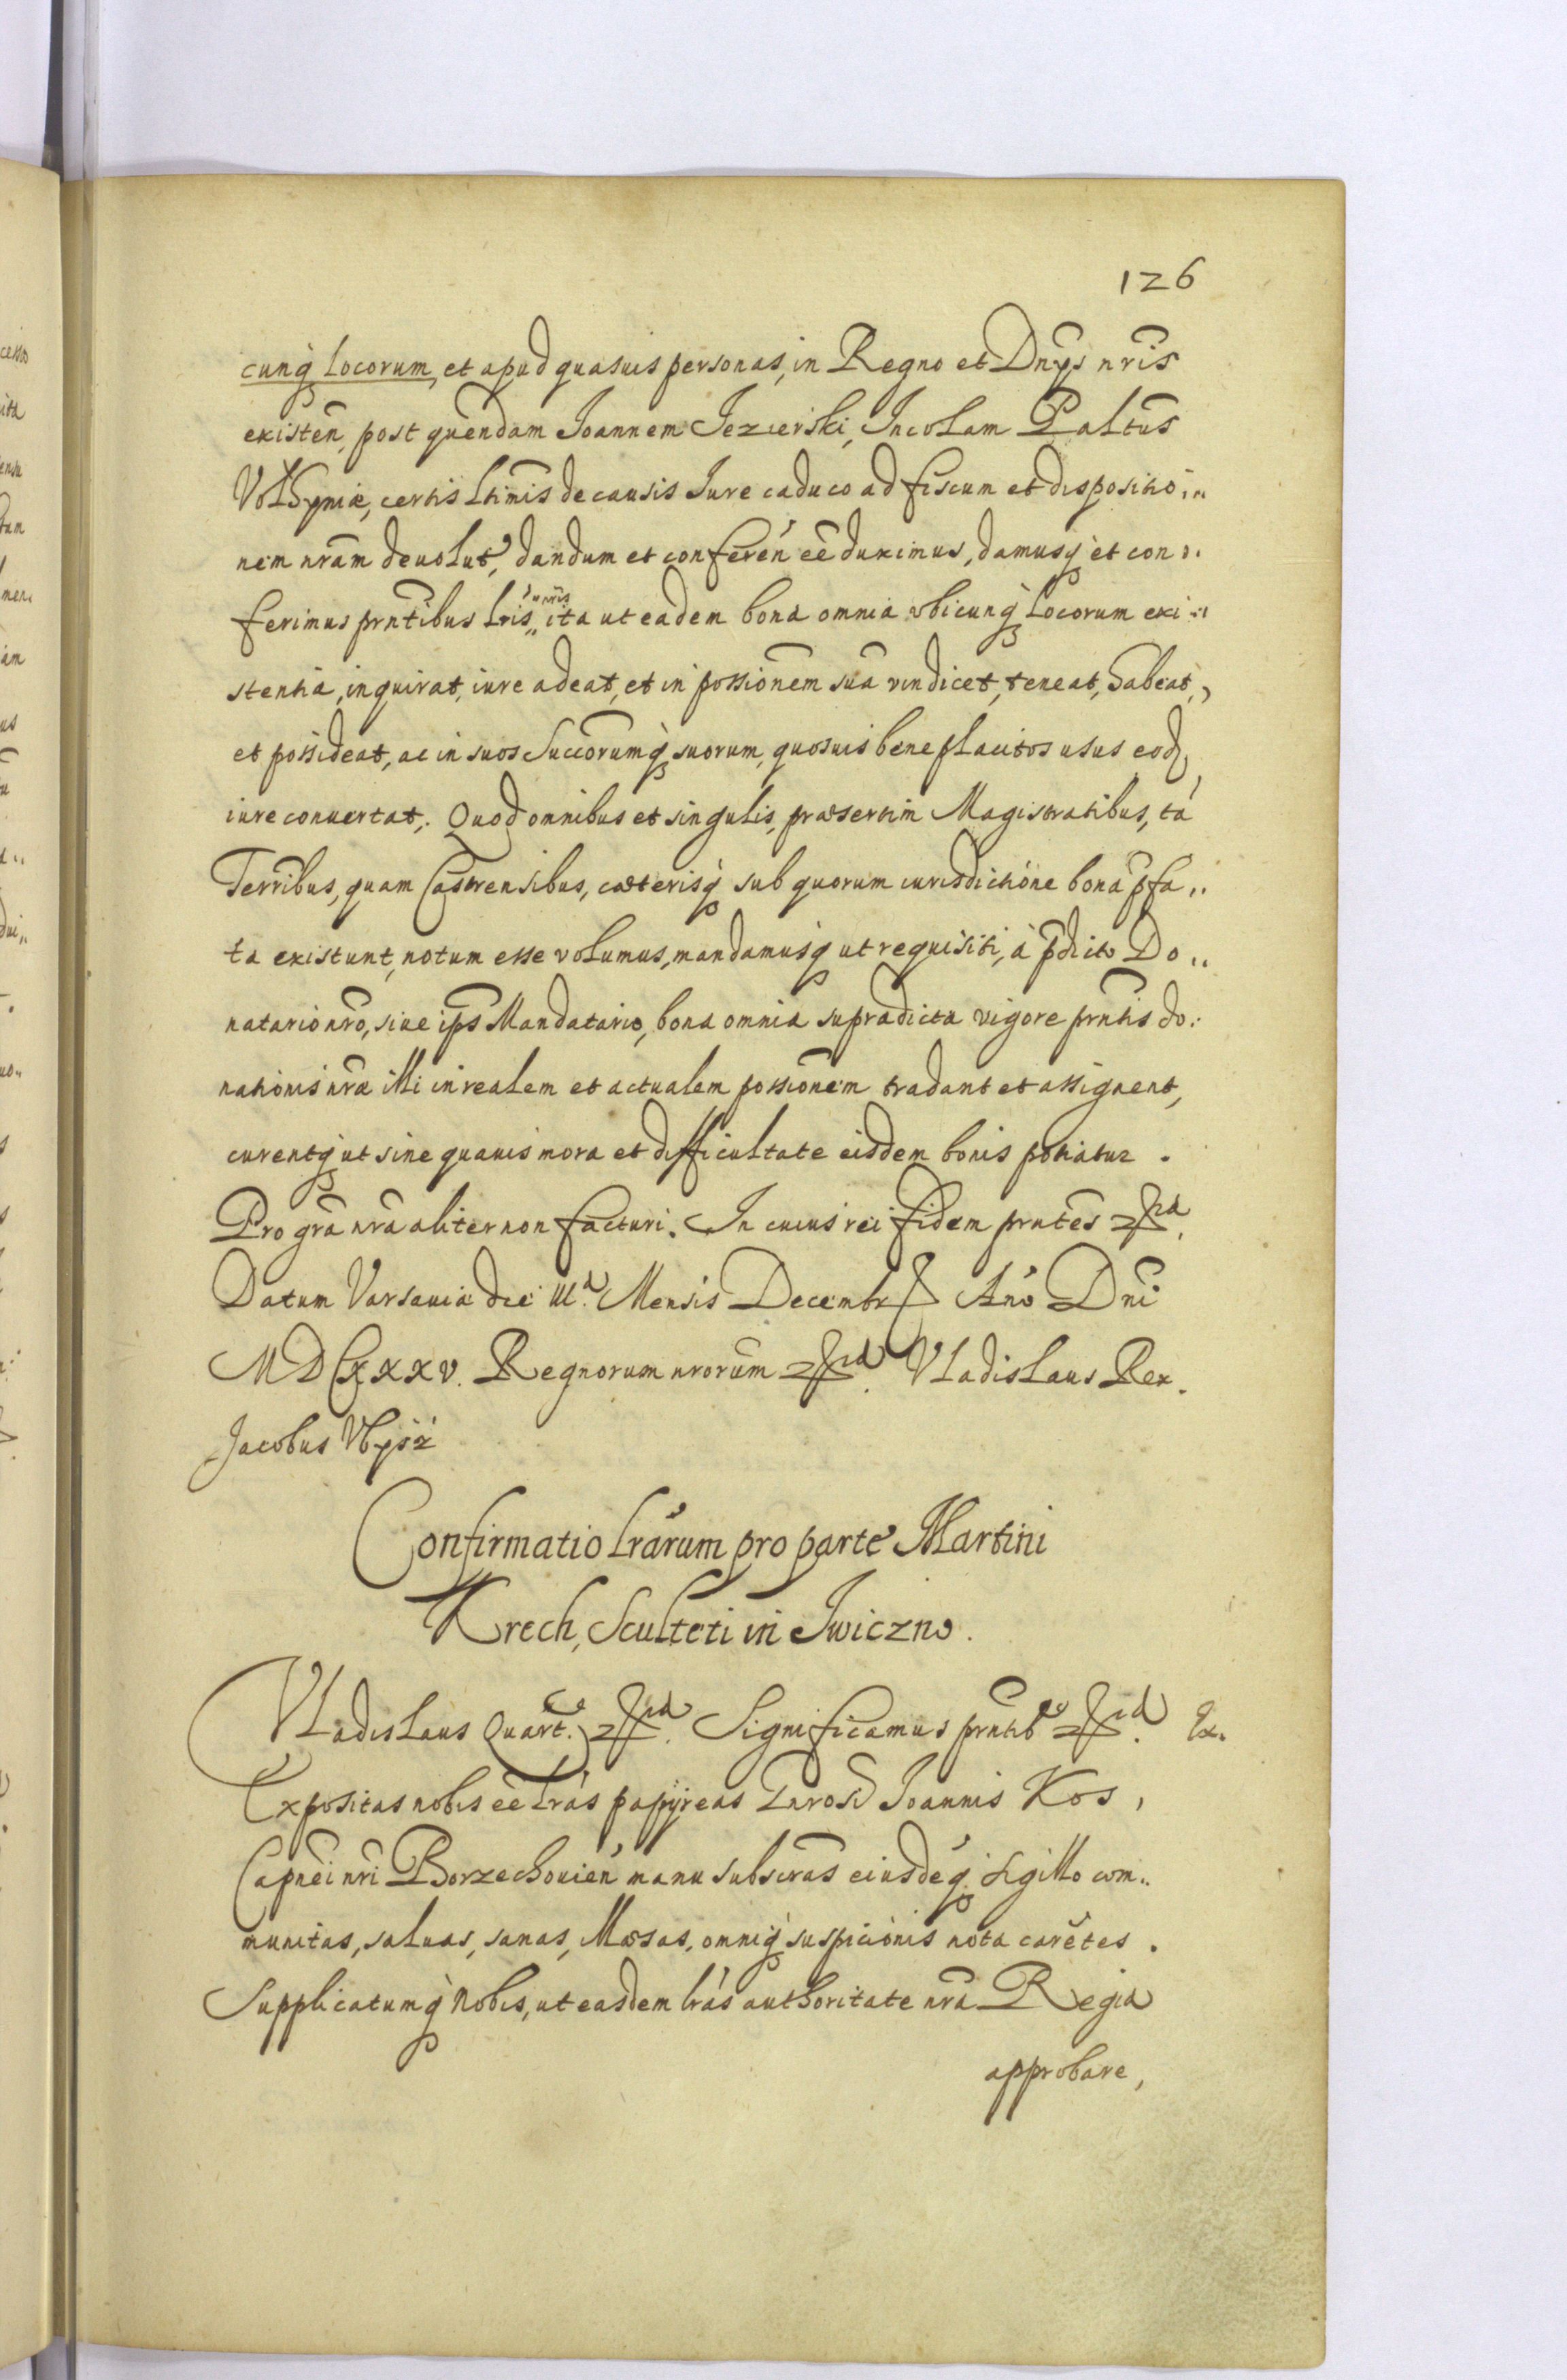 126
cunq́ Locorum, et apud quasuis personas, in Regno et Dnÿs nris
existen̄, post quendam Joannem Jezierski, Incolam Paltus
Volhyniæ, certis Ltimis de causis Iure caduco ad fiscum et dispositio,,
nem nram deuolut, dandum et conferen̄ eē duximus, damusq́ et con,,
ferimus prntibus Lris,, ita ut eadem bona omnia vbicunq́ Locorum exi,,
stentia, inquirat, iure adeat, et in possionem sua vindicet, teneat, habeat,
et possideat, ac in suos Succorumq́ suorum, quosuis beneplacitos usus eod,
iure conuertat. Quod omnibus et singulis, præsertim Magistratibus, tā
Terribus, quam Castrensibus, cæterisq́ sub quorum iurisdictione bona pfa,,
ta existunt, notum esse volumus, mandamusq́ ut requisiti, à pdicto Do,,
natario nro, siue ips Mandatario, bona omnia supradicta vigore prntis do,,
nationis nræ illi in realem et actualem possionem tradant et assignent,
curentq́ ut sine quauis mora et difficultate eisdem bonis potiatur.
Pro gra nra aliter non facturi. In cuius rei fidem prntes
Datum Varsauiæ die III.a Mensis Decembr Anō Dni
MDCXXXV. Regnorum nrorum Vladislaus Rex.
Jacobus Vbysz
Confirmatio Lrarum pro parte Martini
Krech, Sculteti in Jwiczno.
Vladislaus Quart. Significamus prntib Ex.
Expositas nobis eē Lrás papyreas Gnrosi Joannis Kos,
Capnei nri Borzechouien̄ manu subscras eiusdēq́ sigillo com,,
munitas, saluas, sanas, illæsas, omniq́ suspicionis nota carētes.
Supplicatumq́ Nobis, ut easdem lrás authoritate nra Regia
approbare,